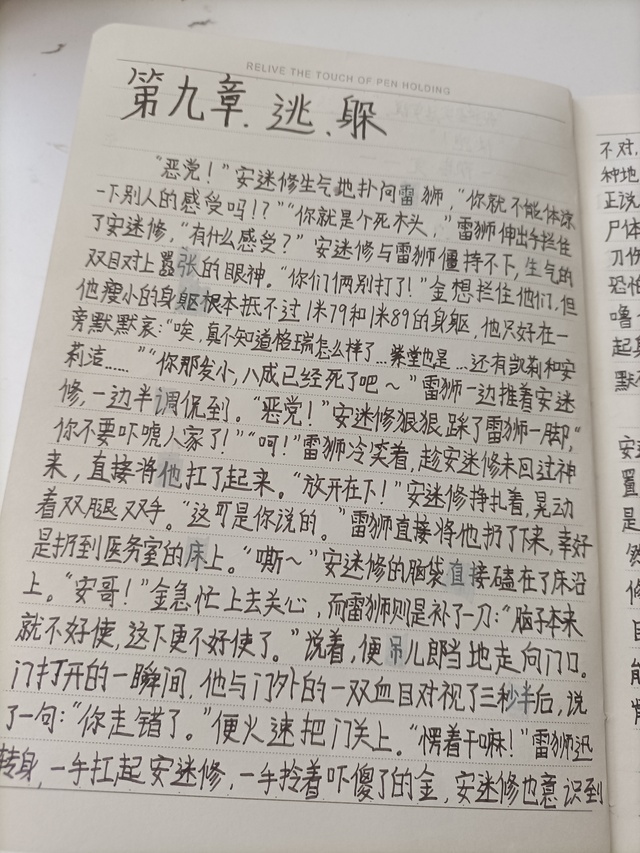 RELIVE THE TOUCH OF PEN HOLDING
第九章.逃.躲
“恶党！”安迷修生气地扑向雷狮，“你就不能体谅
一下别人的感受吗！？”“你就是个死木头，”雷狮伸出手拦住
了安迷修，“有什么感受？”安迷修与雷狮僵持不下，生气的
双目对上嚣张的眼神。“你们俩别打了！”金想拦住他们，但
他瘦小的身躯根本抵不过1米79和1米89的身躯，他只好在一
旁默默哀：“唉，真不知道格瑞怎么样了…紫堂也是…还有凯莉和安
莉洁……”“你那发小，八成已经死了吧～”雷狮一边推着安迷
修，一边半调侃到。“恶党！”安迷修狠狠踩了雷狮一脚，“
你不要吓唬人家了！”“呵！”雷狮冷笑着，趁安迷修未回过神
来，直接将他扛了起来。“放开在下！”安迷修挣扎着，晃动
着双腿双手。“这可是你说的。”雷狮直接将他扔了下来，幸好
是扔到医务室的床上。“嘶～”安迷修的脑袋直接磕在了床沿
上。“安哥！”金急忙上去关心，而雷狮则是补了一刀：“脑子本来
就不好使，这下更不好使了。”说着，便吊儿郎当地走向门口。
门打开的一瞬间，他与门外的一双血目对视了三秒半后，说
了一句：“你走错了。”便火速把门关上。“愣着干嘛！”雷狮迅
转身，一手扛起安迷修，一手拎着吓傻了的金，安迷修也意识到
不对，
种地
正说
尸体
刀伤
恐怕
噜
起身
默
安
置
是
然
修
目
能